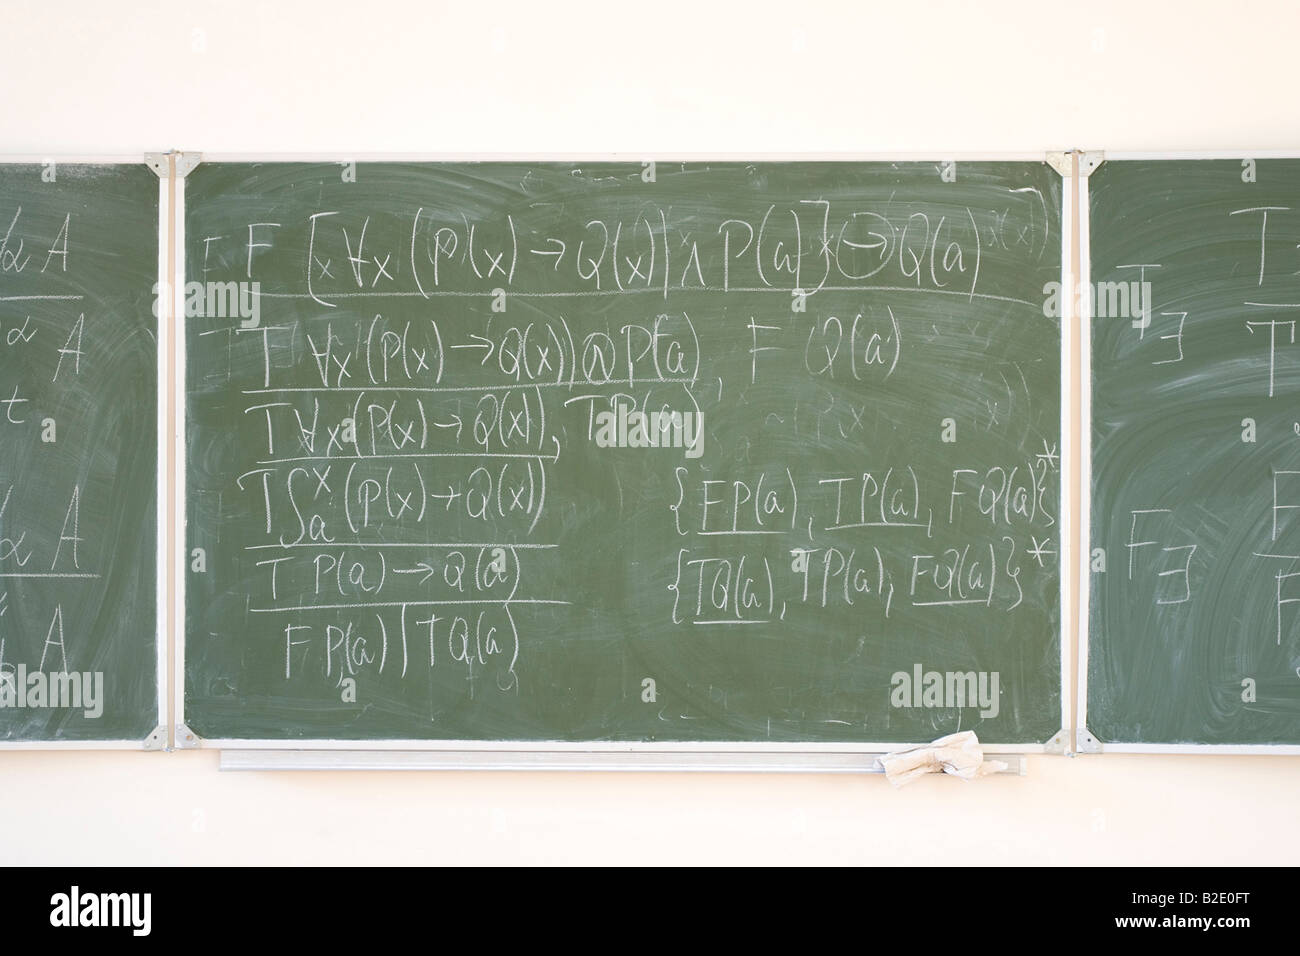 α A
α A
t
α A
A
F [∀x (P(x) → Q(x)) ∧ P(a)] → Q(a)
T ∀x (P(x) → Q(x)) ∧ P(a), F Q(a)
T ∀x (P(x) → Q(x)), T P(a)
T S^x_a (P(x) → Q(x))
T P(a) → Q(a)
F P(a) | T Q(a)
{F P(a), T P(a), F Q(a)}*
{T Q(a), T P(a), F Q(a)}*
T∃
T
T
F∃
F
F
alamy
alamy
Image ID: B2E0FT
www.alamy.com